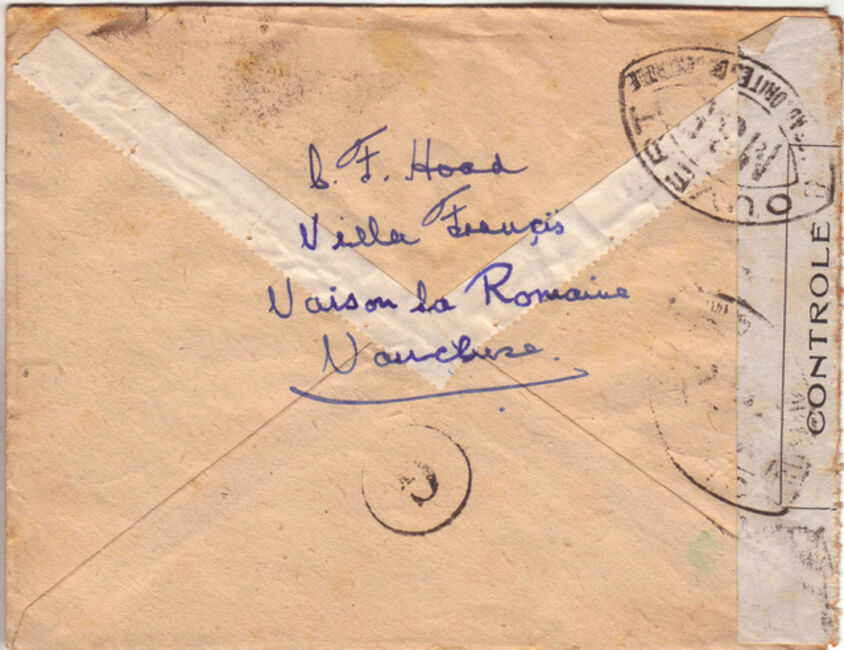 B. F. Hoad
Villa Françis
Vaison la Romaine
Vaucluse.
OUVERT
CONTROLÉ
C